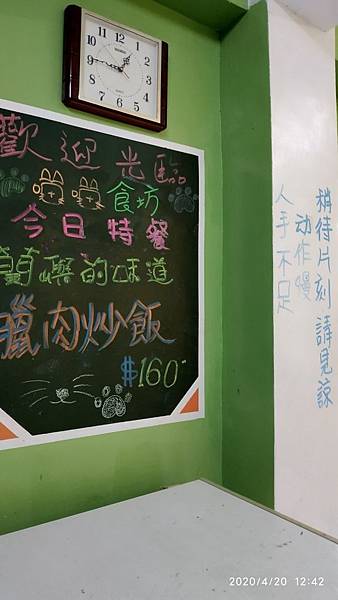 歡迎光臨
食坊
今日特餐
蘭嶼的味道
臘肉炒飯
$160-
人手不足
动作慢
稍待片刻 請見諒
12
1
2
3
4
5
6
7
8
9
10
11
2020/4/20 12:42